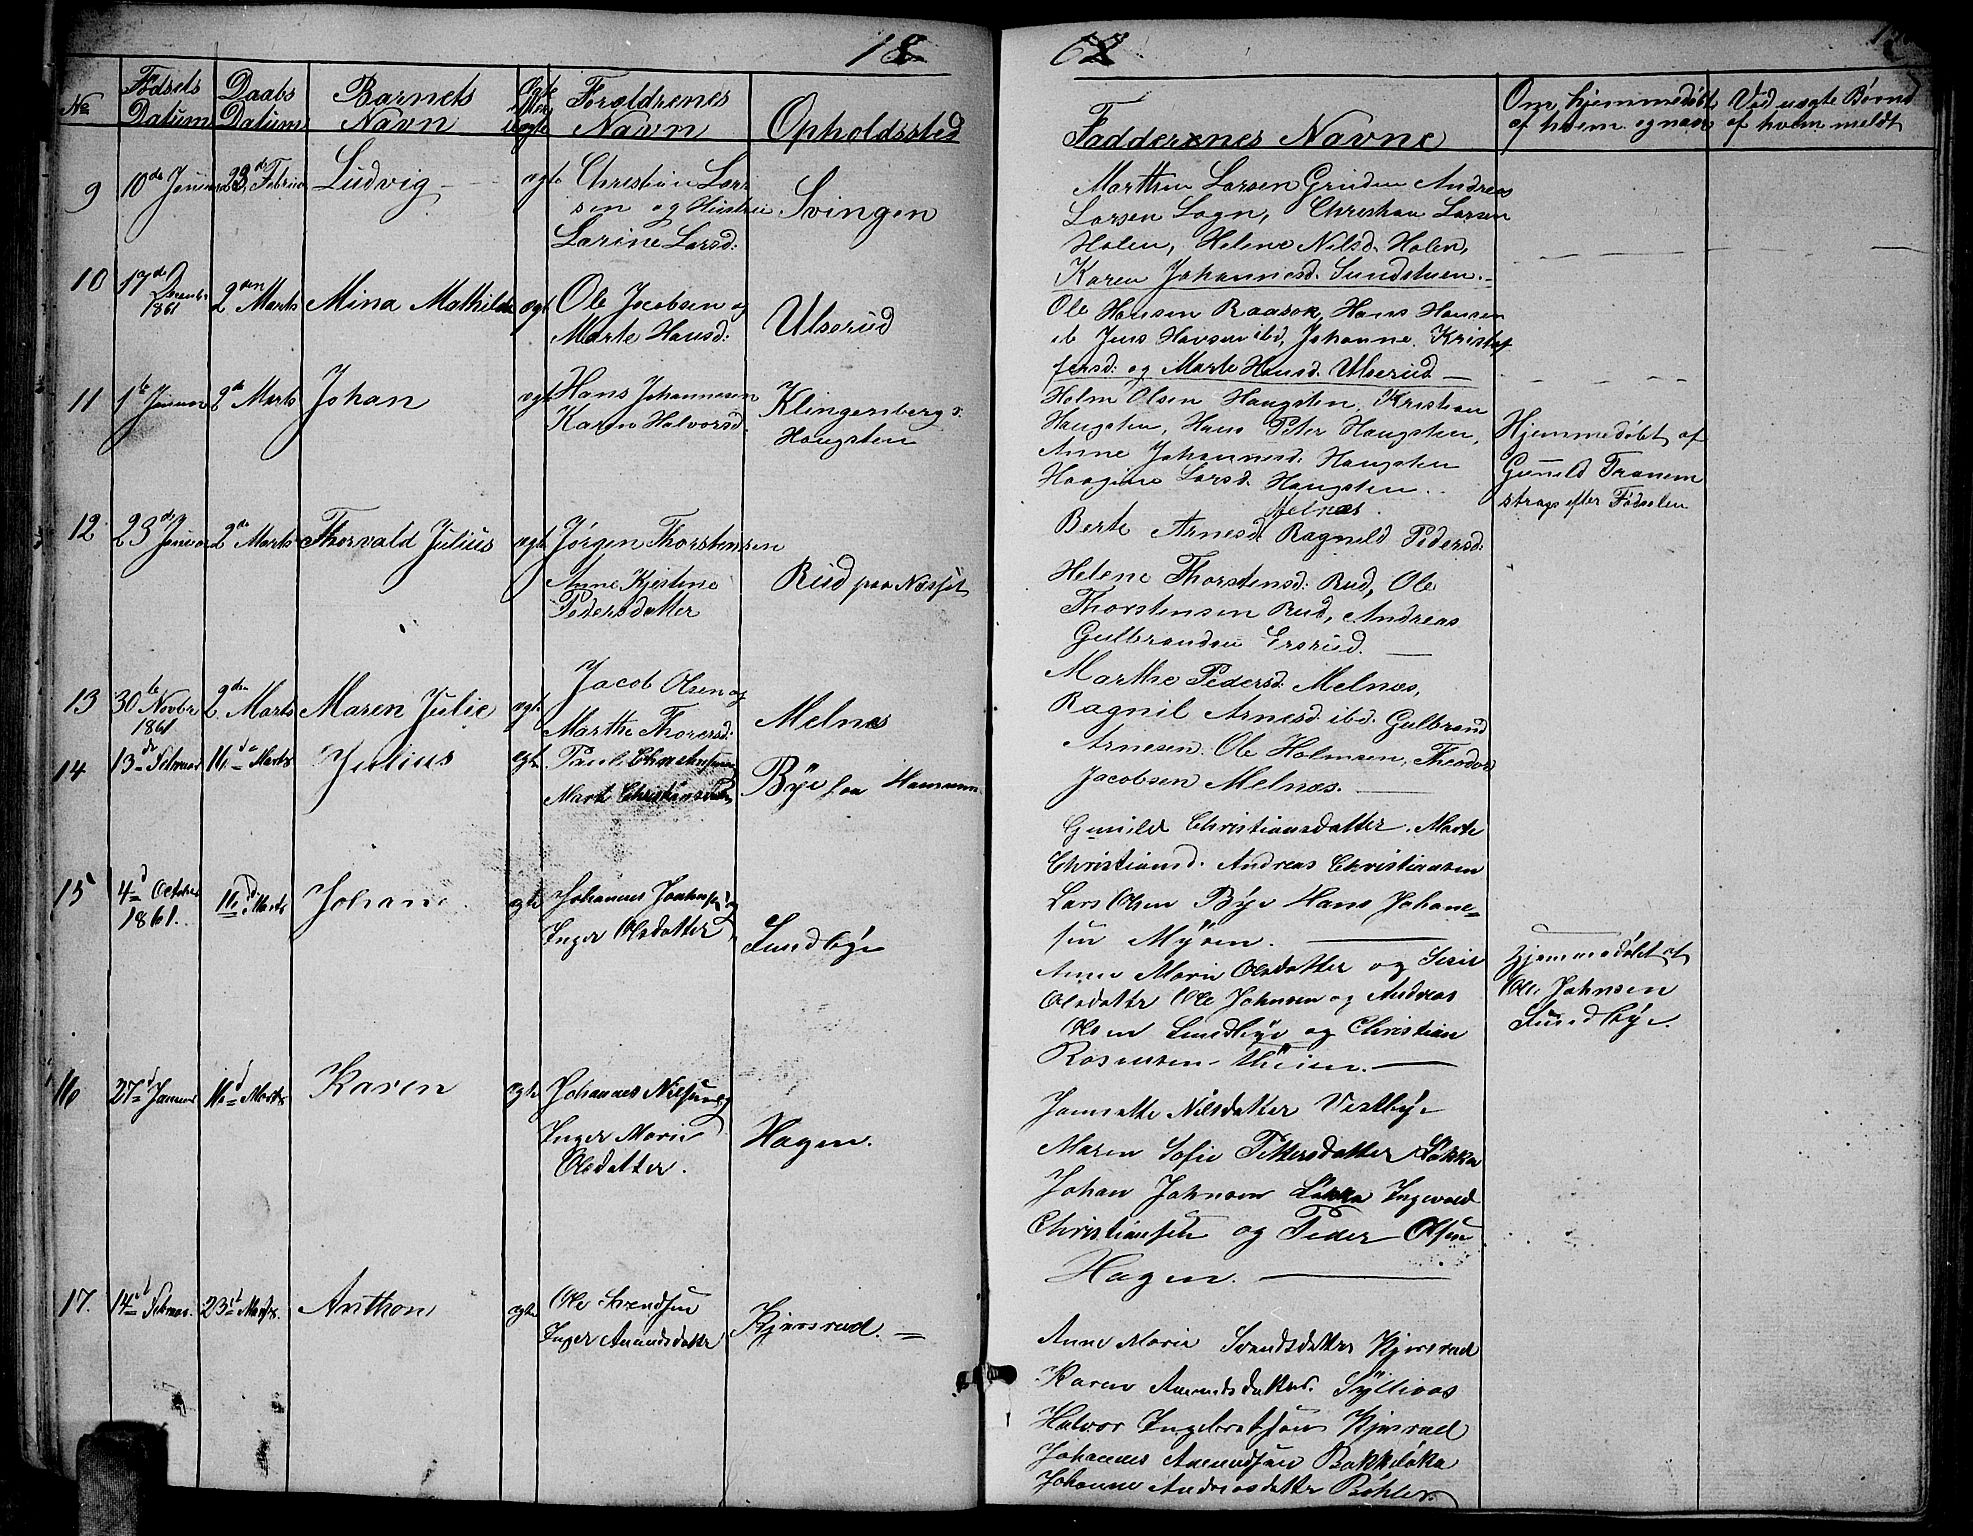 18 62
No
Fødsels Datum
Daabs Datum
Barnets Navn
Ægte eller uægte
Forældrenes Navn
Opholdssted
Faddernes Navne
Om hjemmedøbt af hvem og naar
Ved uægte Børn af hvem meldt
9 10de Januar 23de Februar Ludvig ægte Christian Lar-
sen og Hustru
Larine Larsd:
Svingen
Marthen Larsen Grinden Andreas
Larsen Sogn, Christian Larsen
Holen, Helene Nilsd. Holen,
Karen Johannesd. Sundstuen.
10 17de Decembr 1861 2den Marts Mina Mathilde ægte Ole Jacobsen og
Marte Hansd:
Ulserud
Ole Hansen Raasok, Hans Hansen
ib Jens Hansen ibd, Johanne Kristof
fersd: og Marte Hansd. Ulserud
11 1te Januar 2de Marts Johan ægte Hans Johannesen
Karen Halvorsd.
Klingenberg s:
Haugsten
Holm Olsen Haugsten, Kristian
Haugsten, Hans Peter Haugsten,
Anne Johannesd: Haugsten
Haagine Larsd. Haugsten.
Hjemmedøbt af
Gunild Tranem
strags efter Fødselen
12 23de Januar 2de Marts Thorvald Julius ægte Jørgen Thorstensen
Anne Kjestine
Pedersdatter
Rud paa Næsset
Melnæs.
Berte Arnesd. Ragnild Pedersd:
Helene Thorstensd: Rud, Ole
Thorstensen Rud, Andreas
Gulbrandsen Ersrud.
13 30te Novbr 1861 2den Marts Maren Julie ægte Jacob Olsen og
Marthe Thorersd:
Melnæs
Marthe Pedersd: Melnæs,
Ragnil Arnesd ibd. Gulbrand
Arnesen. Ole Holmsen, Theodor
Jacobsen Melnæs.
14 13de Februar 16de Marts Julius ægte Paul Christiansen
Marte Christiansdatter
Bÿe
Gunild Christiansdatter. Marte
Christiansd. Andreas Christiansen
Lars Olsen Bÿe Hans Johane-
sen Mÿren.
15 4d October 1861. 16d Marts Johan ægte Johannes
Inger Olsdatter
Sundbÿe
Anne Marie Olsdatter og Siri
Olsdatter Ole Johnsen og Andreas
Olsen Sundbÿe og Christian
Hjemmedøbt af
Ole Johnsen
Sundbÿe.
16 27d Januar 16d Marts Karen ægte Johannes Nilsen og
Inger Marie
Olsdatter.
Hagen.
Jannette Nilsdatter Vestbÿe
Maren Sofie Pettersdatter Løkka
Johan Johnsen Løkka Ingevald
Christiansen og Peder Olsen
Hagen.
17. 14d Februar. 23d Marts. Anthon ægte Ole Svendsen
Inger Amundsdatter
Kjinsrud.
Anne Marie Svendsdatter Kjinsrud
Karen Amundsdatter. Sÿlliaas
Halvor Ingebretsen Kjinsrud
Johannes Amundsen Bakkeløka
Johanne Andreasdatter Bøhler.